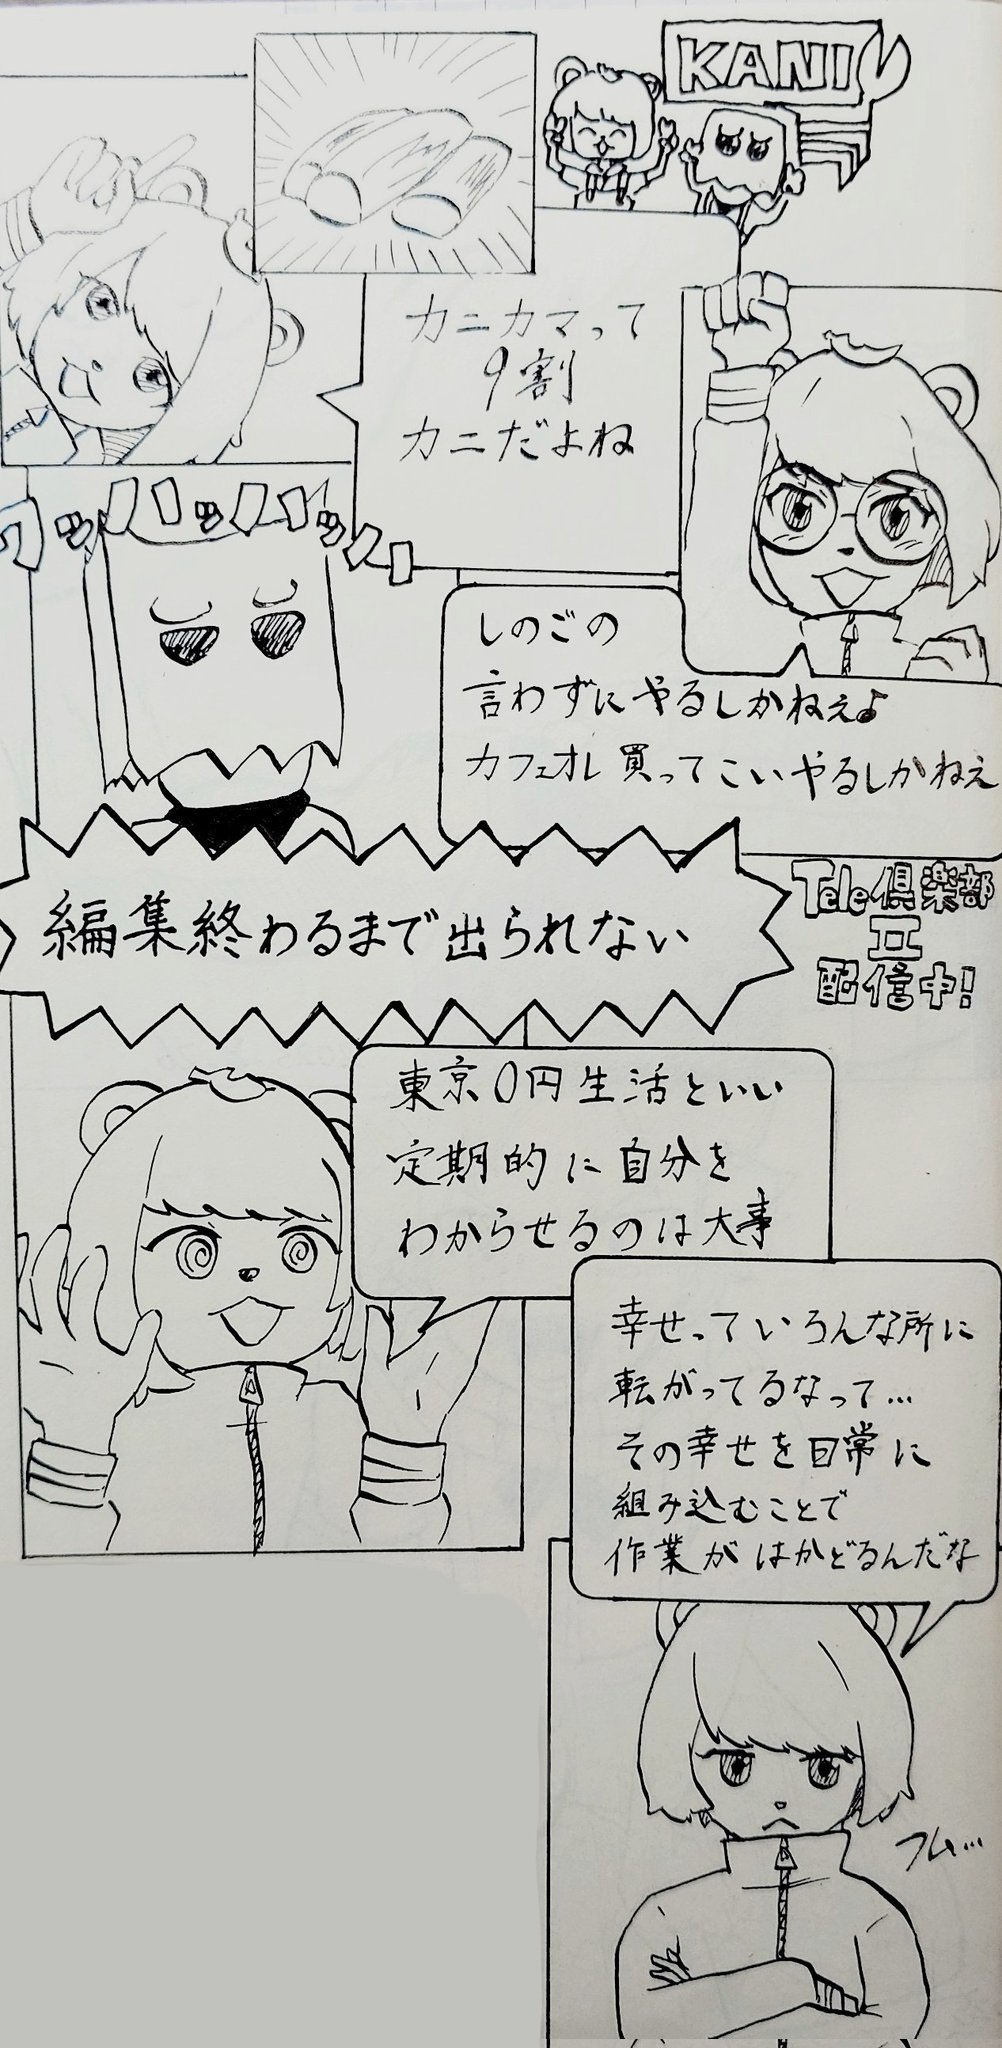 KANI
カニカマって
9割
カニだよね
しのごの
言わずにやるしかねぇよ
カフェオレ買ってこいやるしかねぇ
編集終わるまで出られない
Tele倶楽部
II
配信中!
東京0円生活といい
定期的に自分を
わからせるのは大事
幸せっていろんな所に
転がってるなって…
その幸せを日常に
組み込むことで
作業がはかどるんだな
フム…